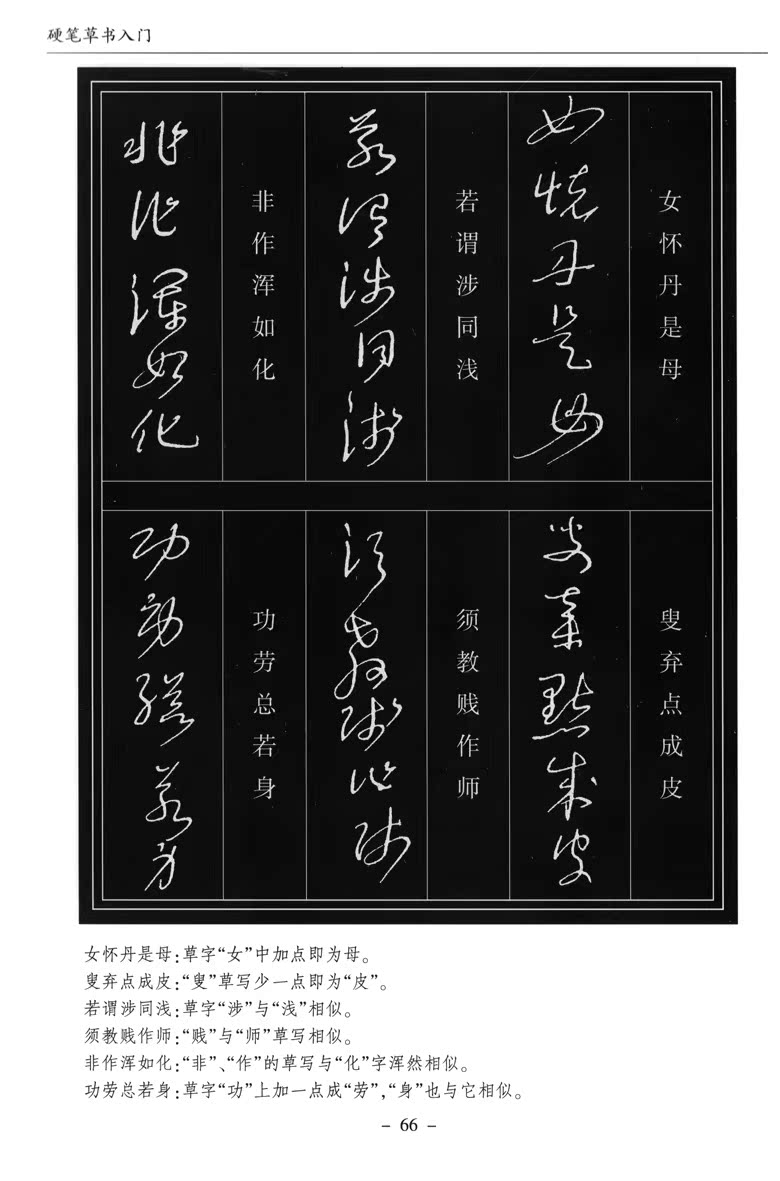 硬笔草书入门
女怀丹是母
女怀丹是母
叟弃点成皮
叟弃点成皮
若谓涉同浅
若谓涉同浅
须教贱作师
须教贱作师
非作浑如化
非作浑如化
功劳总若身
功劳总若身
女怀丹是母:草字“女”中加点即为母。
叟弃点成皮:“叟”草写少一点即为“皮”。
若谓涉同浅:草字“涉”与“浅”相似。
须教贱作师:“贱”与“师”草写相似。
非作浑如化:“非”、“作”的草写与“化”字浑然相似。
功劳总若身:草字“功”上加一点成“劳”,“身”也与它相似。
- 66 -